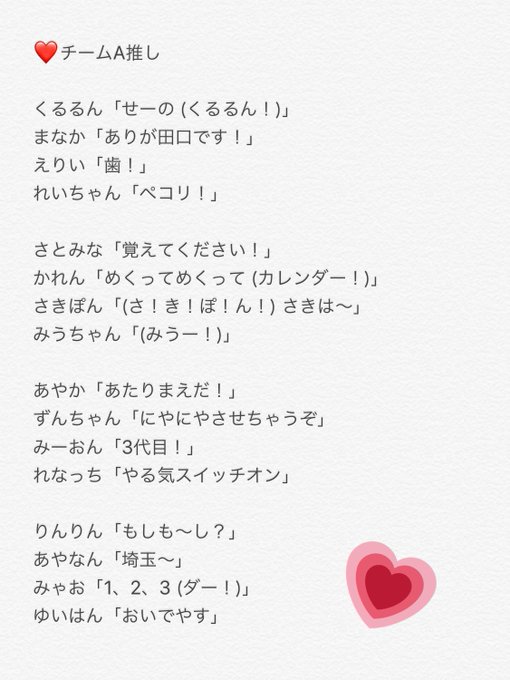 ❤️チームA推し
くるるん「せーの (くるるん！)」
まなか「ありが田口です！」
えりい「歯！」
れいちゃん「ペコリ！」
さとみな「覚えてください！」
かれん「めくってめくって (カレンダー！)」
さきぽん「(さ！き！ぽ！ん！) さきは〜」
みうちゃん「(みうー！)」
あやか「あたりまえだ！」
ずんちゃん「にやにやさせちゃうぞ」
みーおん「3代目！」
れなっち「やる気スイッチオン」
りんりん「もしも〜し？」
あやなん「埼玉〜」
みゃお「1、2、3 (ダー！)」
ゆいはん「おいでやす」